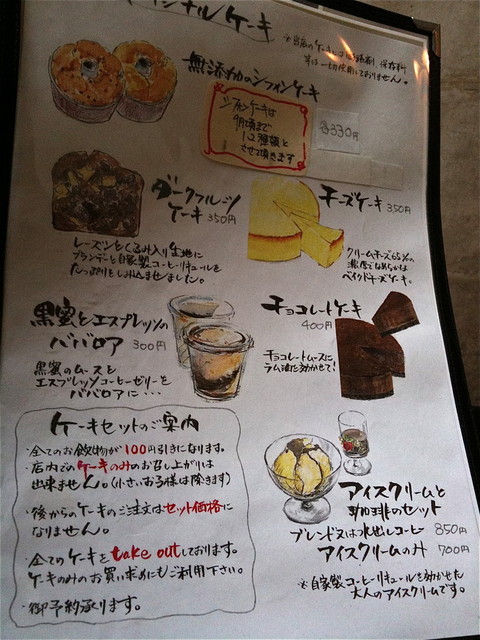 オリジナルケーキ
無添加のシフォンケーキ
シフォンケーキは
9月頃まで
1、2種類と
させて頂きます
各330円
ダークフルーツ
ケーキ 350円
レーズンとくるみ入り生地に
ブランデーと自家製コーヒーリキュールを
たっぷりとしみ込ませました。
チーズケーキ 350円
クリームチーズ65%の
濃厚でなめらかな
ベイクドチーズケーキ。
黒蜜とエスプレッソの
ババロア 300円
黒蜜のムースと
エスプレッソコーヒーゼリーを
ババロアに・・・
チョコレートケーキ
400円
チョコレートムースに
ラム酒に効かせて!
ケーキセットのご案内
・全てのお飲物が100円引きになります。
・店内でのケーキのみのお召し上がりは
出来ません。(小さいお子様は除きます)
・後からのケーキのご注文はセット価格に
なりません。
・全てのケーキをtake outしております。
ケーキのみのお買い求めにもご利用下さい。
・御予約承ります。
アイスクリームと
珈琲のセット
ブレンド又は水出しコーヒー 850円
アイスクリームのみ 700円
※自家製コーヒーリキュールを効かせた
大人のアイスクリームです。